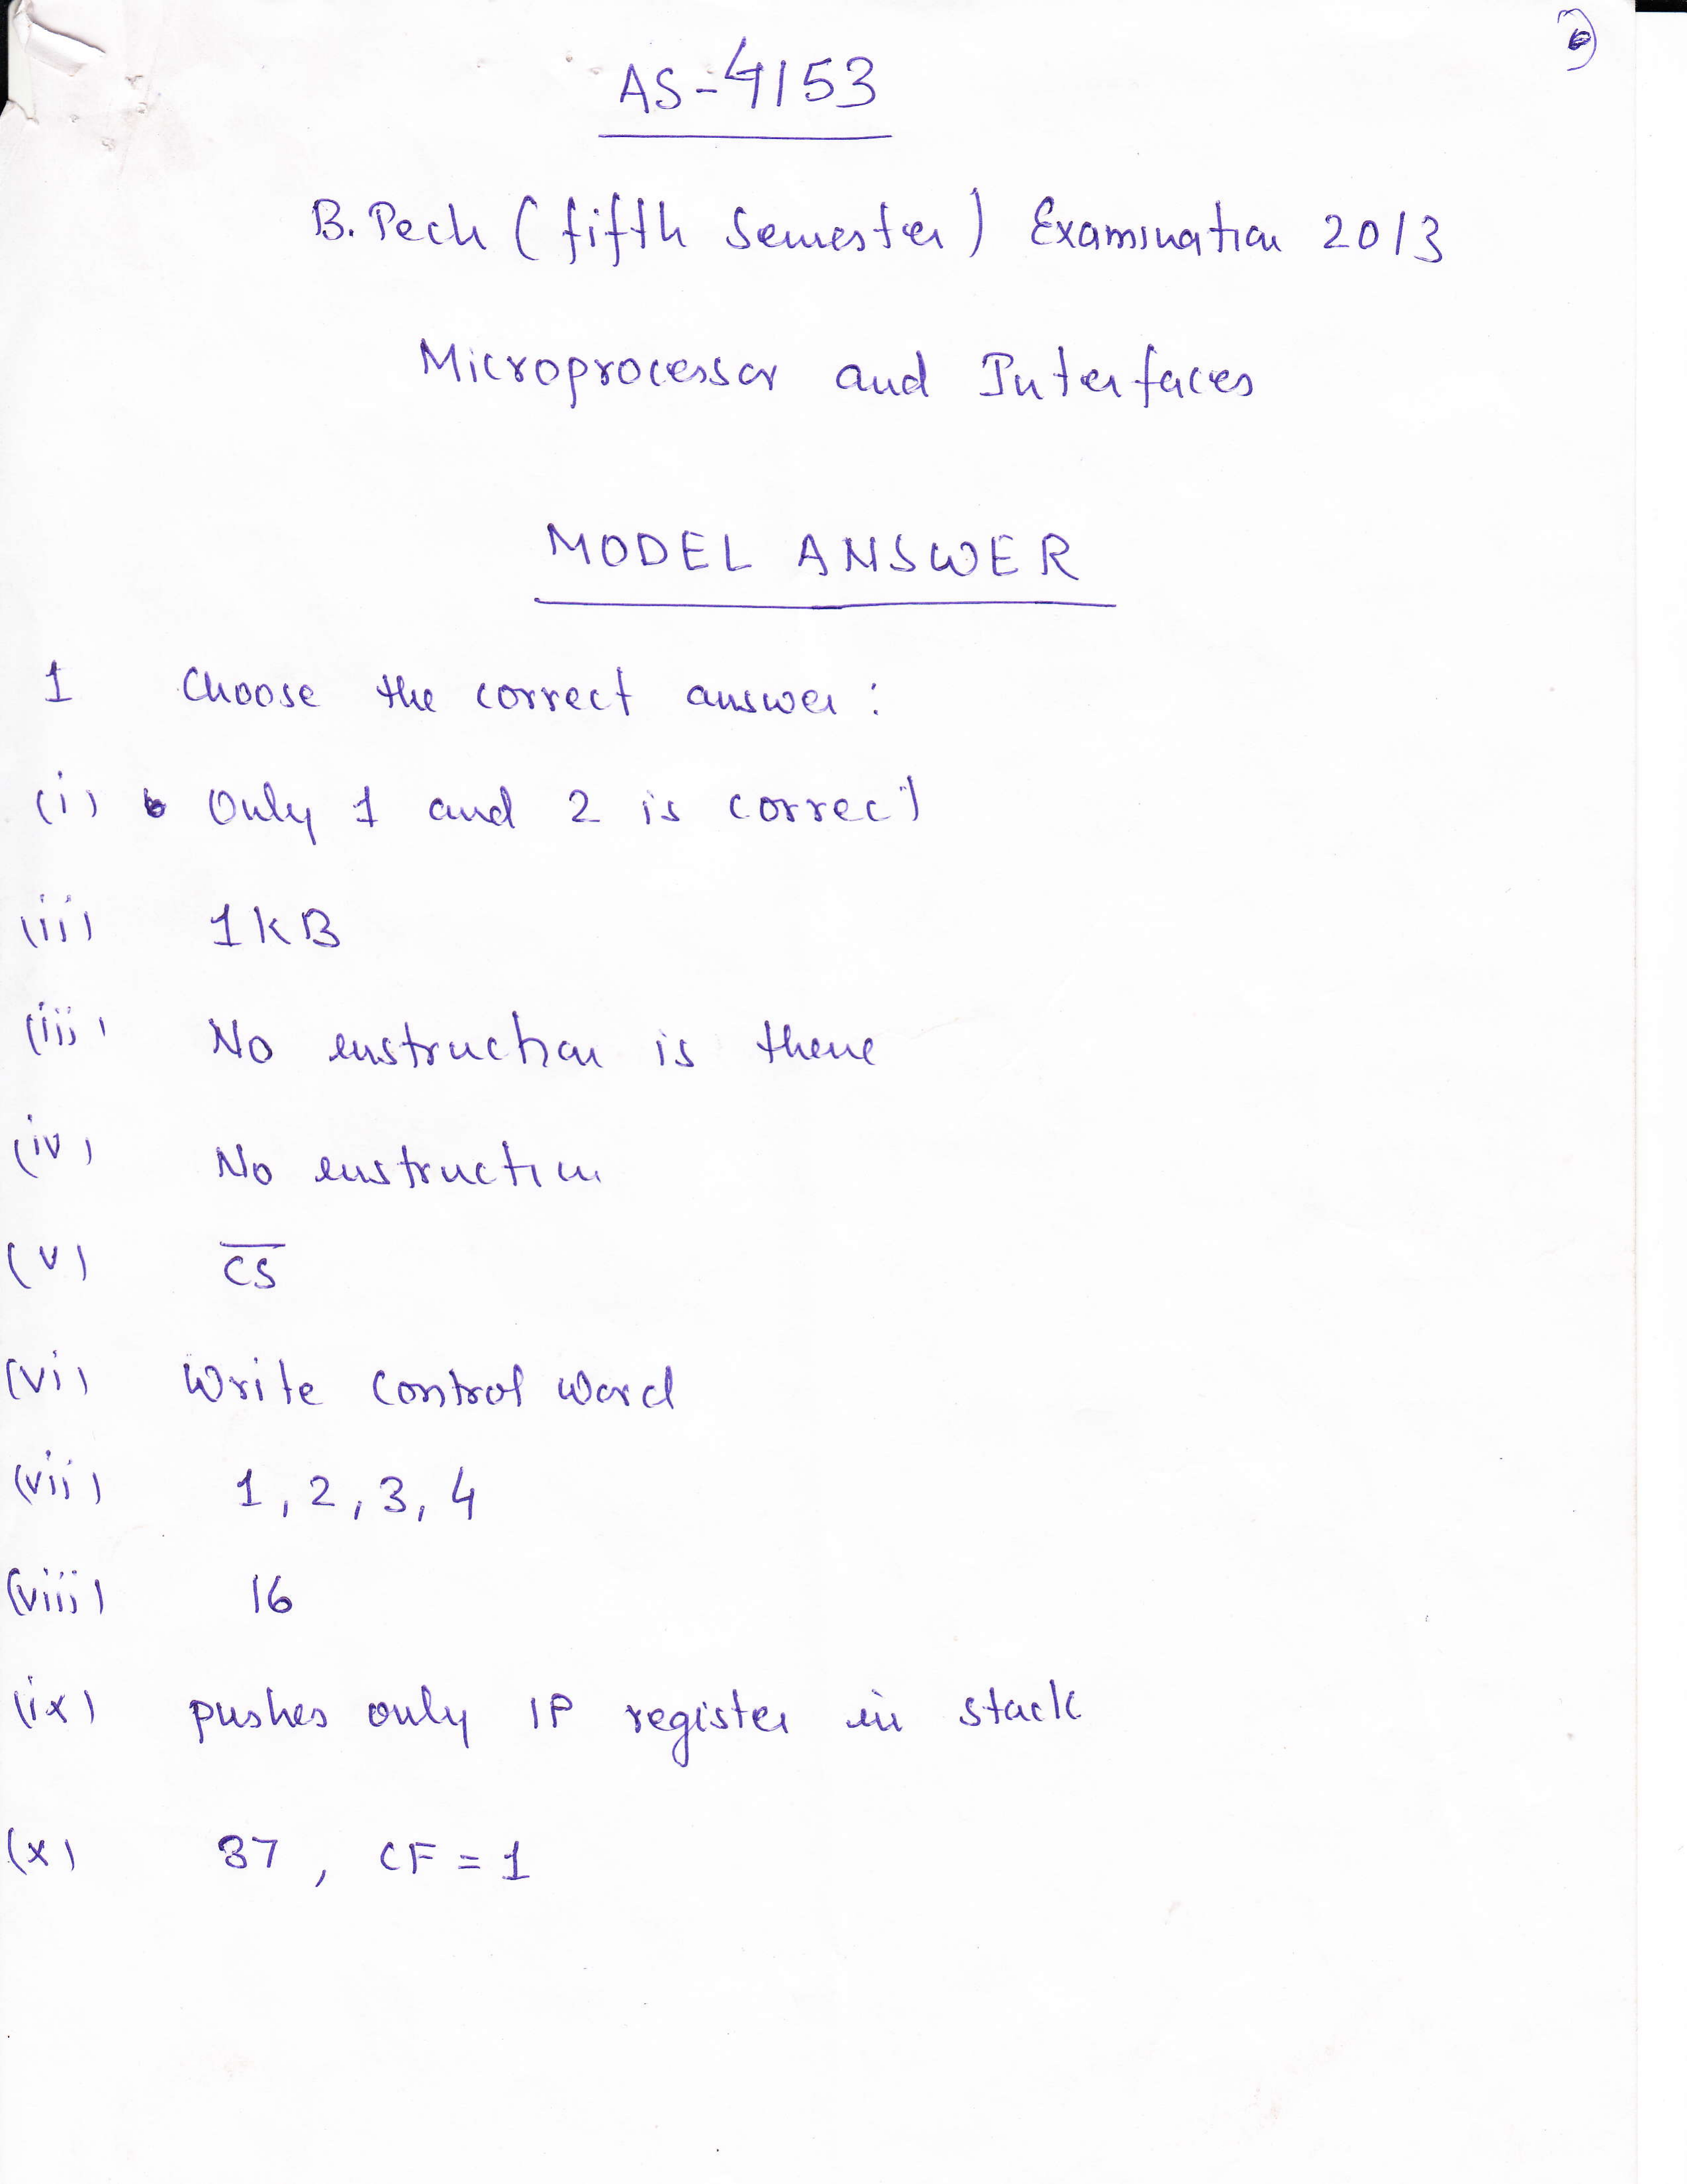 AS-4153
B.Tech (fifth Semester) Examination 2013
Microprocessor and Interfaces
MODEL ANSWER
1 Choose the correct answer:
(i) Only 1 and 2 is correct
(ii) 1KB
(iii) No instruction is there
(iv) No instruction
(v) C̅S̅
(vi) Write control word
(vii) 1, 2, 3, 4
(viii) 16
(ix) pushes only IP register in stack
(x) 37, CF = 1